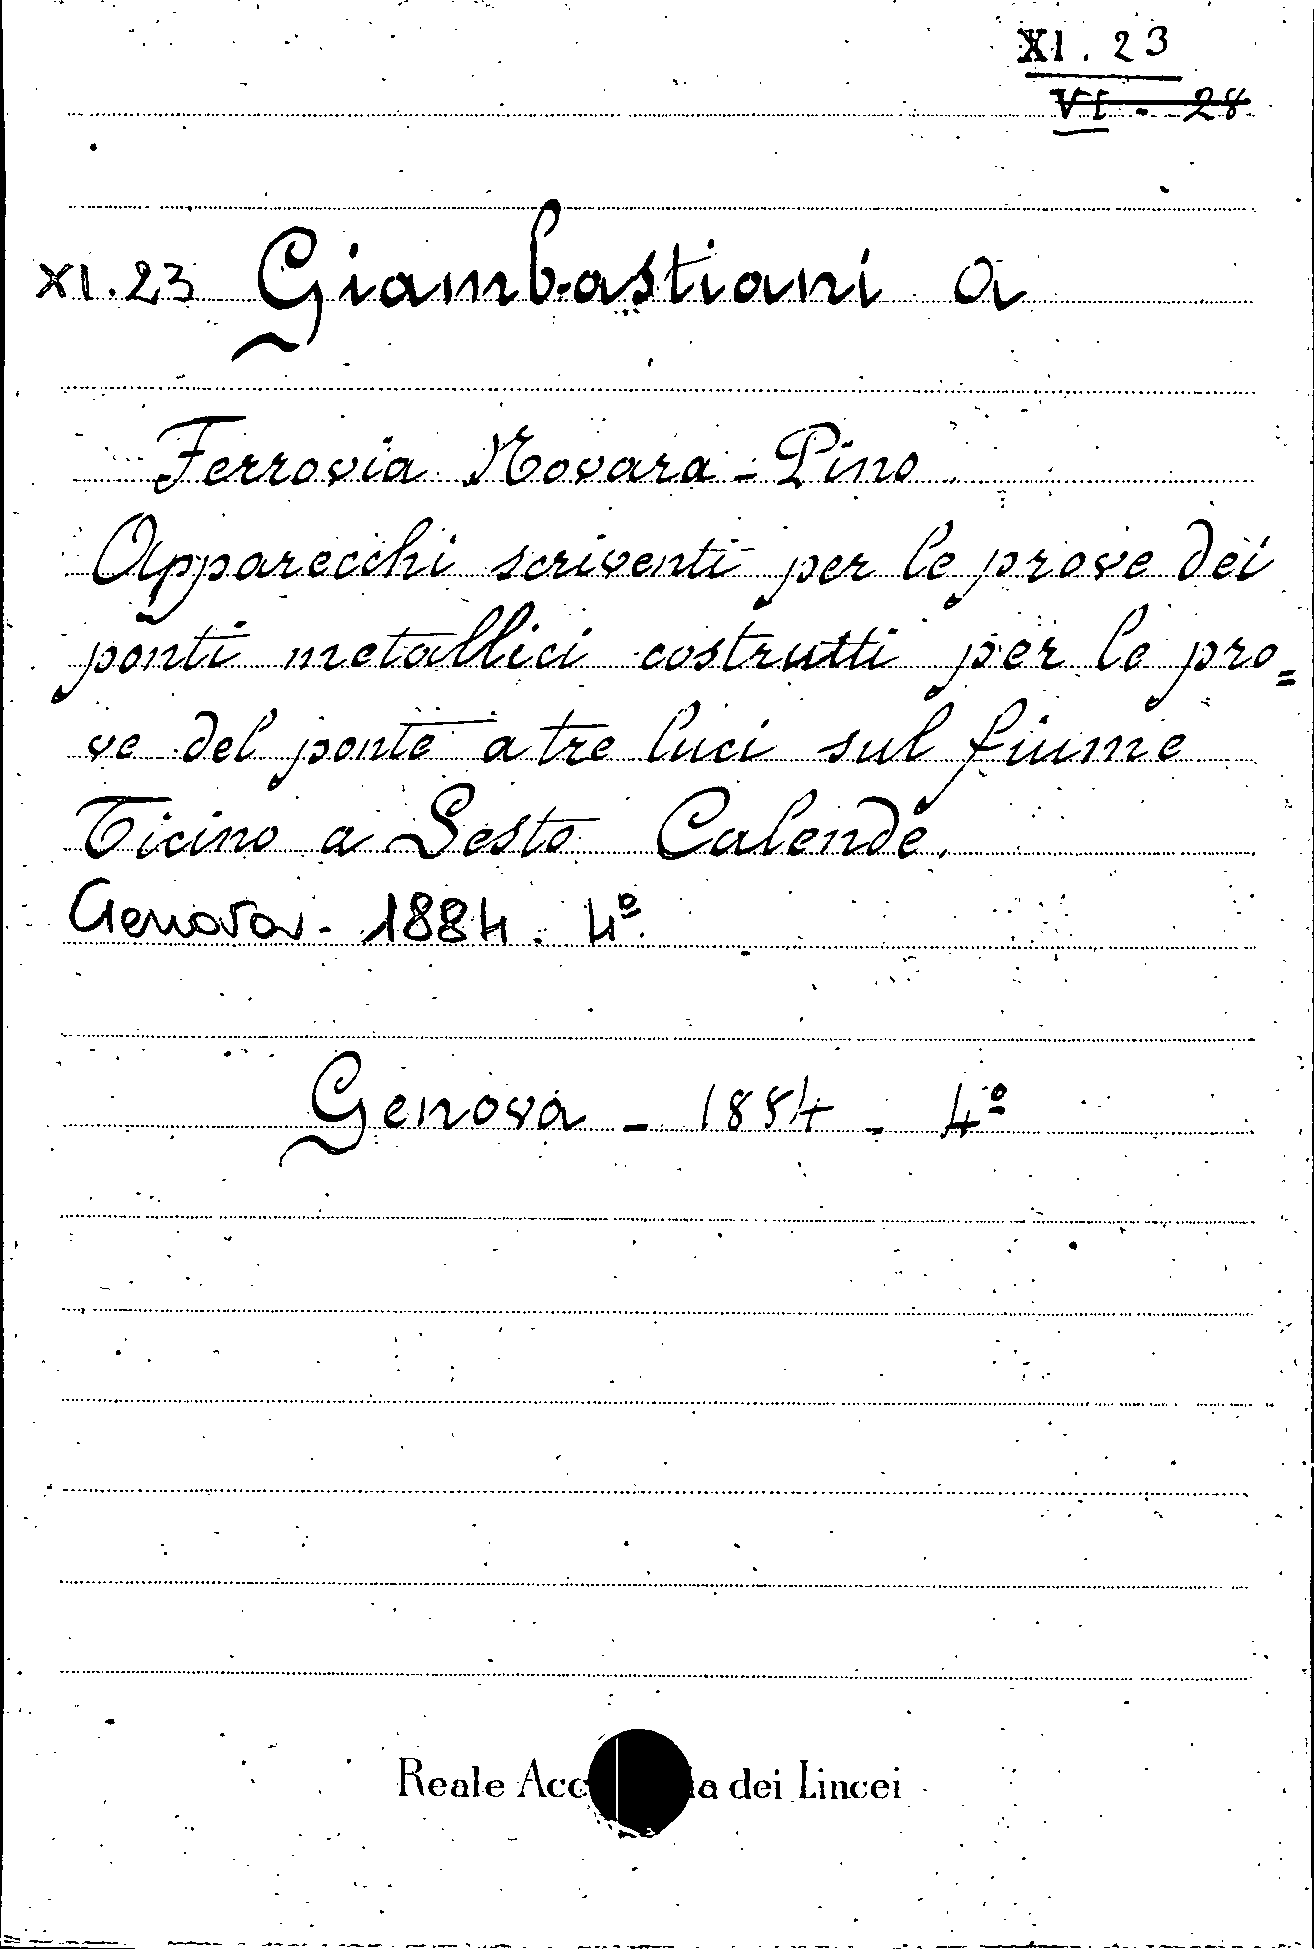 XI. 23
VI - 28
XI. 23 Giambastiani a
Ferrovia Novara - Pino
Apparecchi scriventi per le prove dei
ponti metallici costrutti per le pro=
ve del ponte a tre luci sul fiume
Ticino a Sesto Calende.
Genova - 1884. 4º
Genova - 1884 - 4º
Reale Acc ia dei Lincei